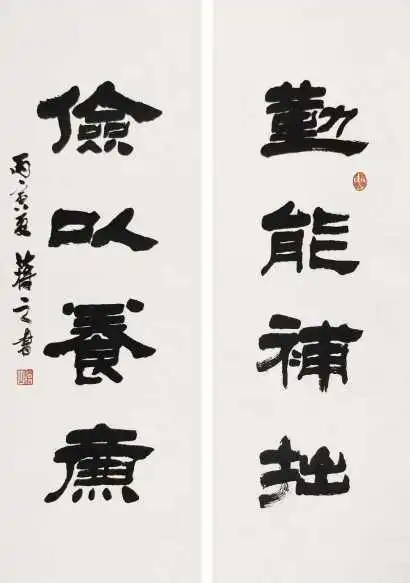 勤能補拙
儉以養廉
丙寅夏 蕗之書